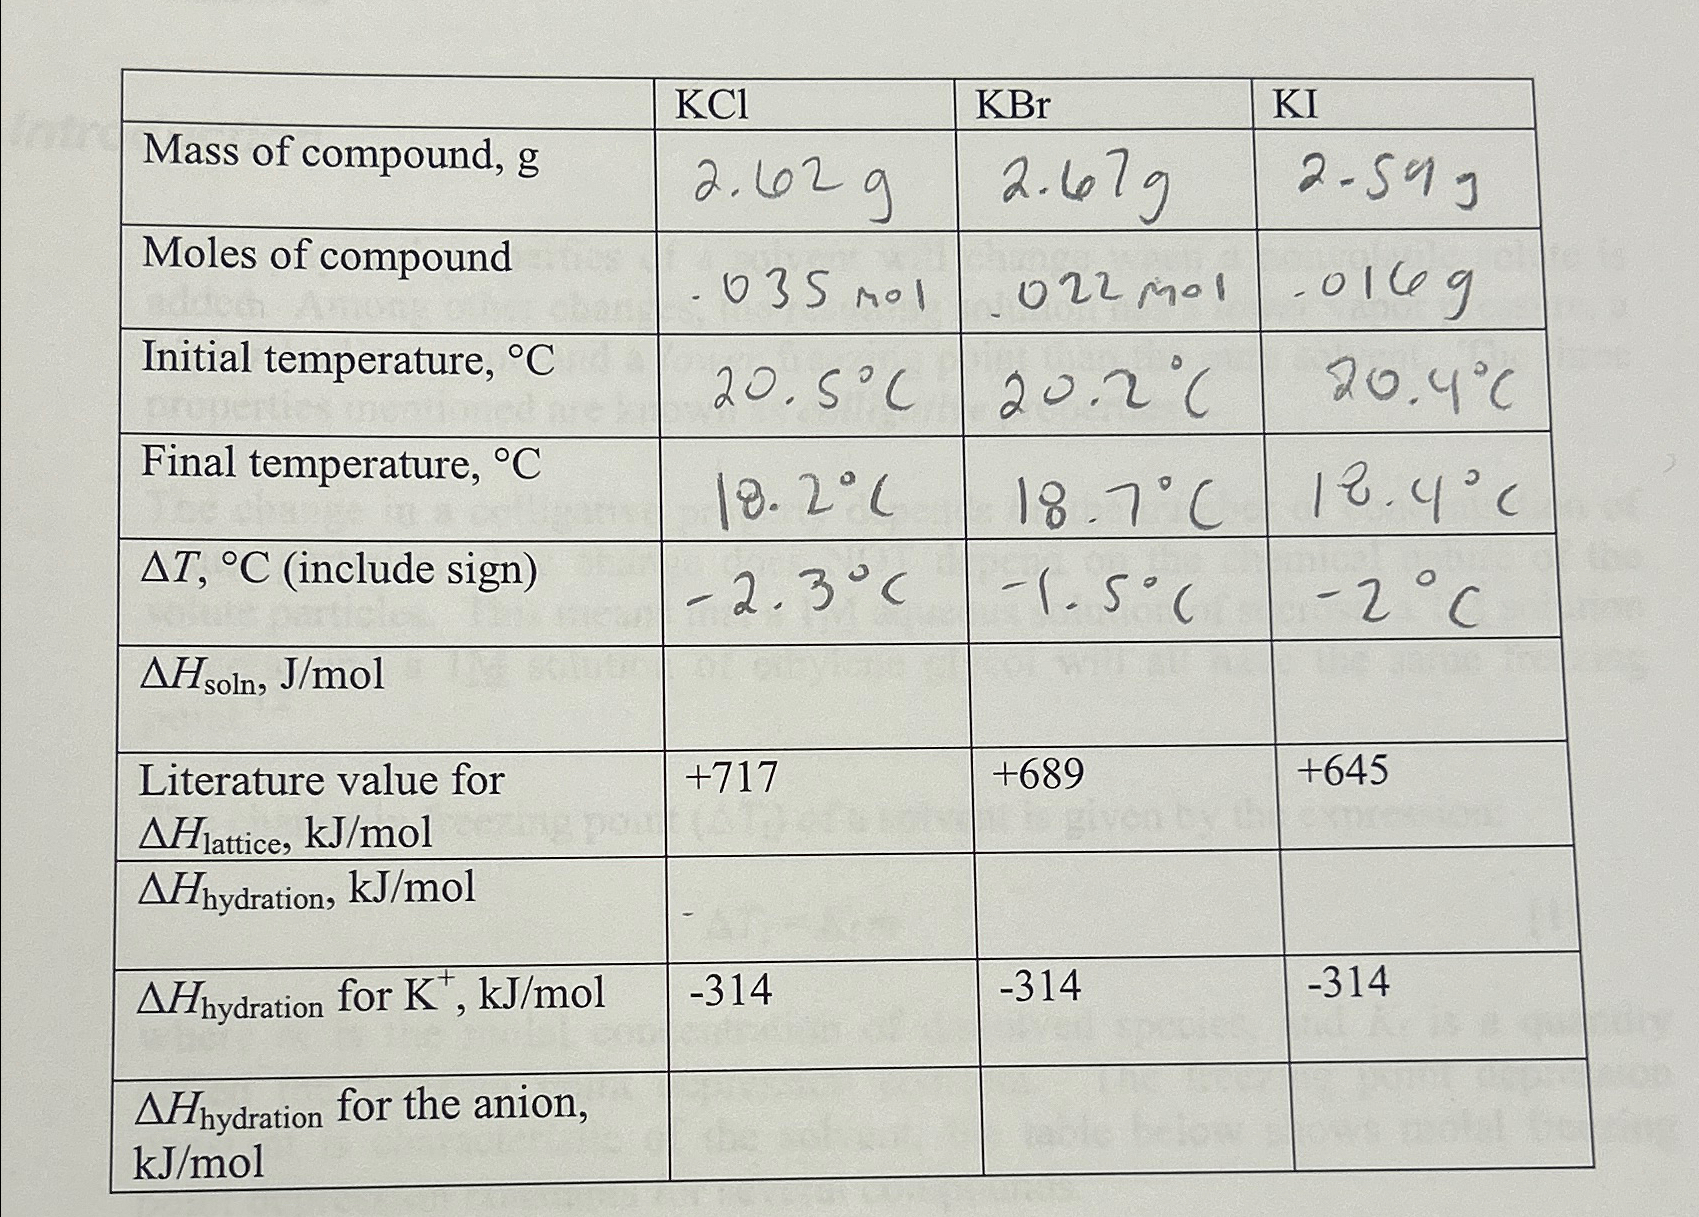 KCl KBr KI
Mass of compound, g 2.62 g 2.67 g 2.59 g
Moles of compound .035 mol .022 mol .016 g
Initial temperature, °C 20.5°C 20.2°C 20.4°C
Final temperature, °C 18.2°C 18.7°C 18.4°C
ΔT, °C (include sign) -2.3°C -1.5°C -2°C
ΔHsoln, J/mol
Literature value for +717 +689 +645
ΔHlattice, kJ/mol
ΔHhydration, kJ/mol -
ΔHhydration for K+, kJ/mol -314 -314 -314
ΔHhydration for the anion,
kJ/mol